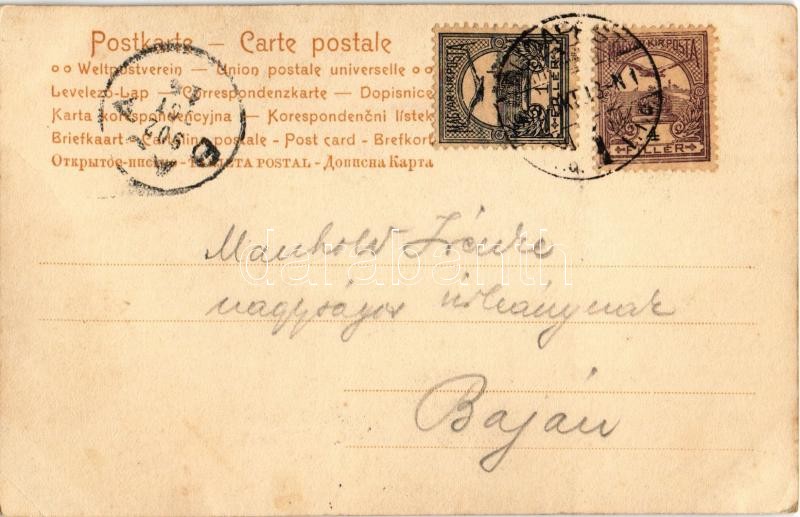 Postkarte — Carte postale
Weltpostverein — Union postale universelle
Levelező-Lap — Correspondenzkarte — Dopisnice
Karta korespondencyjna — Korespondenční lístek
Briefkaart — Cartolina postale - Post card - Brefkort
Открытое-письмо - TARJETA POSTAL - Дописна Карта
MAGYAR KIR. POSTA
1 FILLÉR
MAGYAR KIR. POSTA
FILLÉR
903
Manhold Irénke
nagyságos úrhánynak
Baján
darabanth